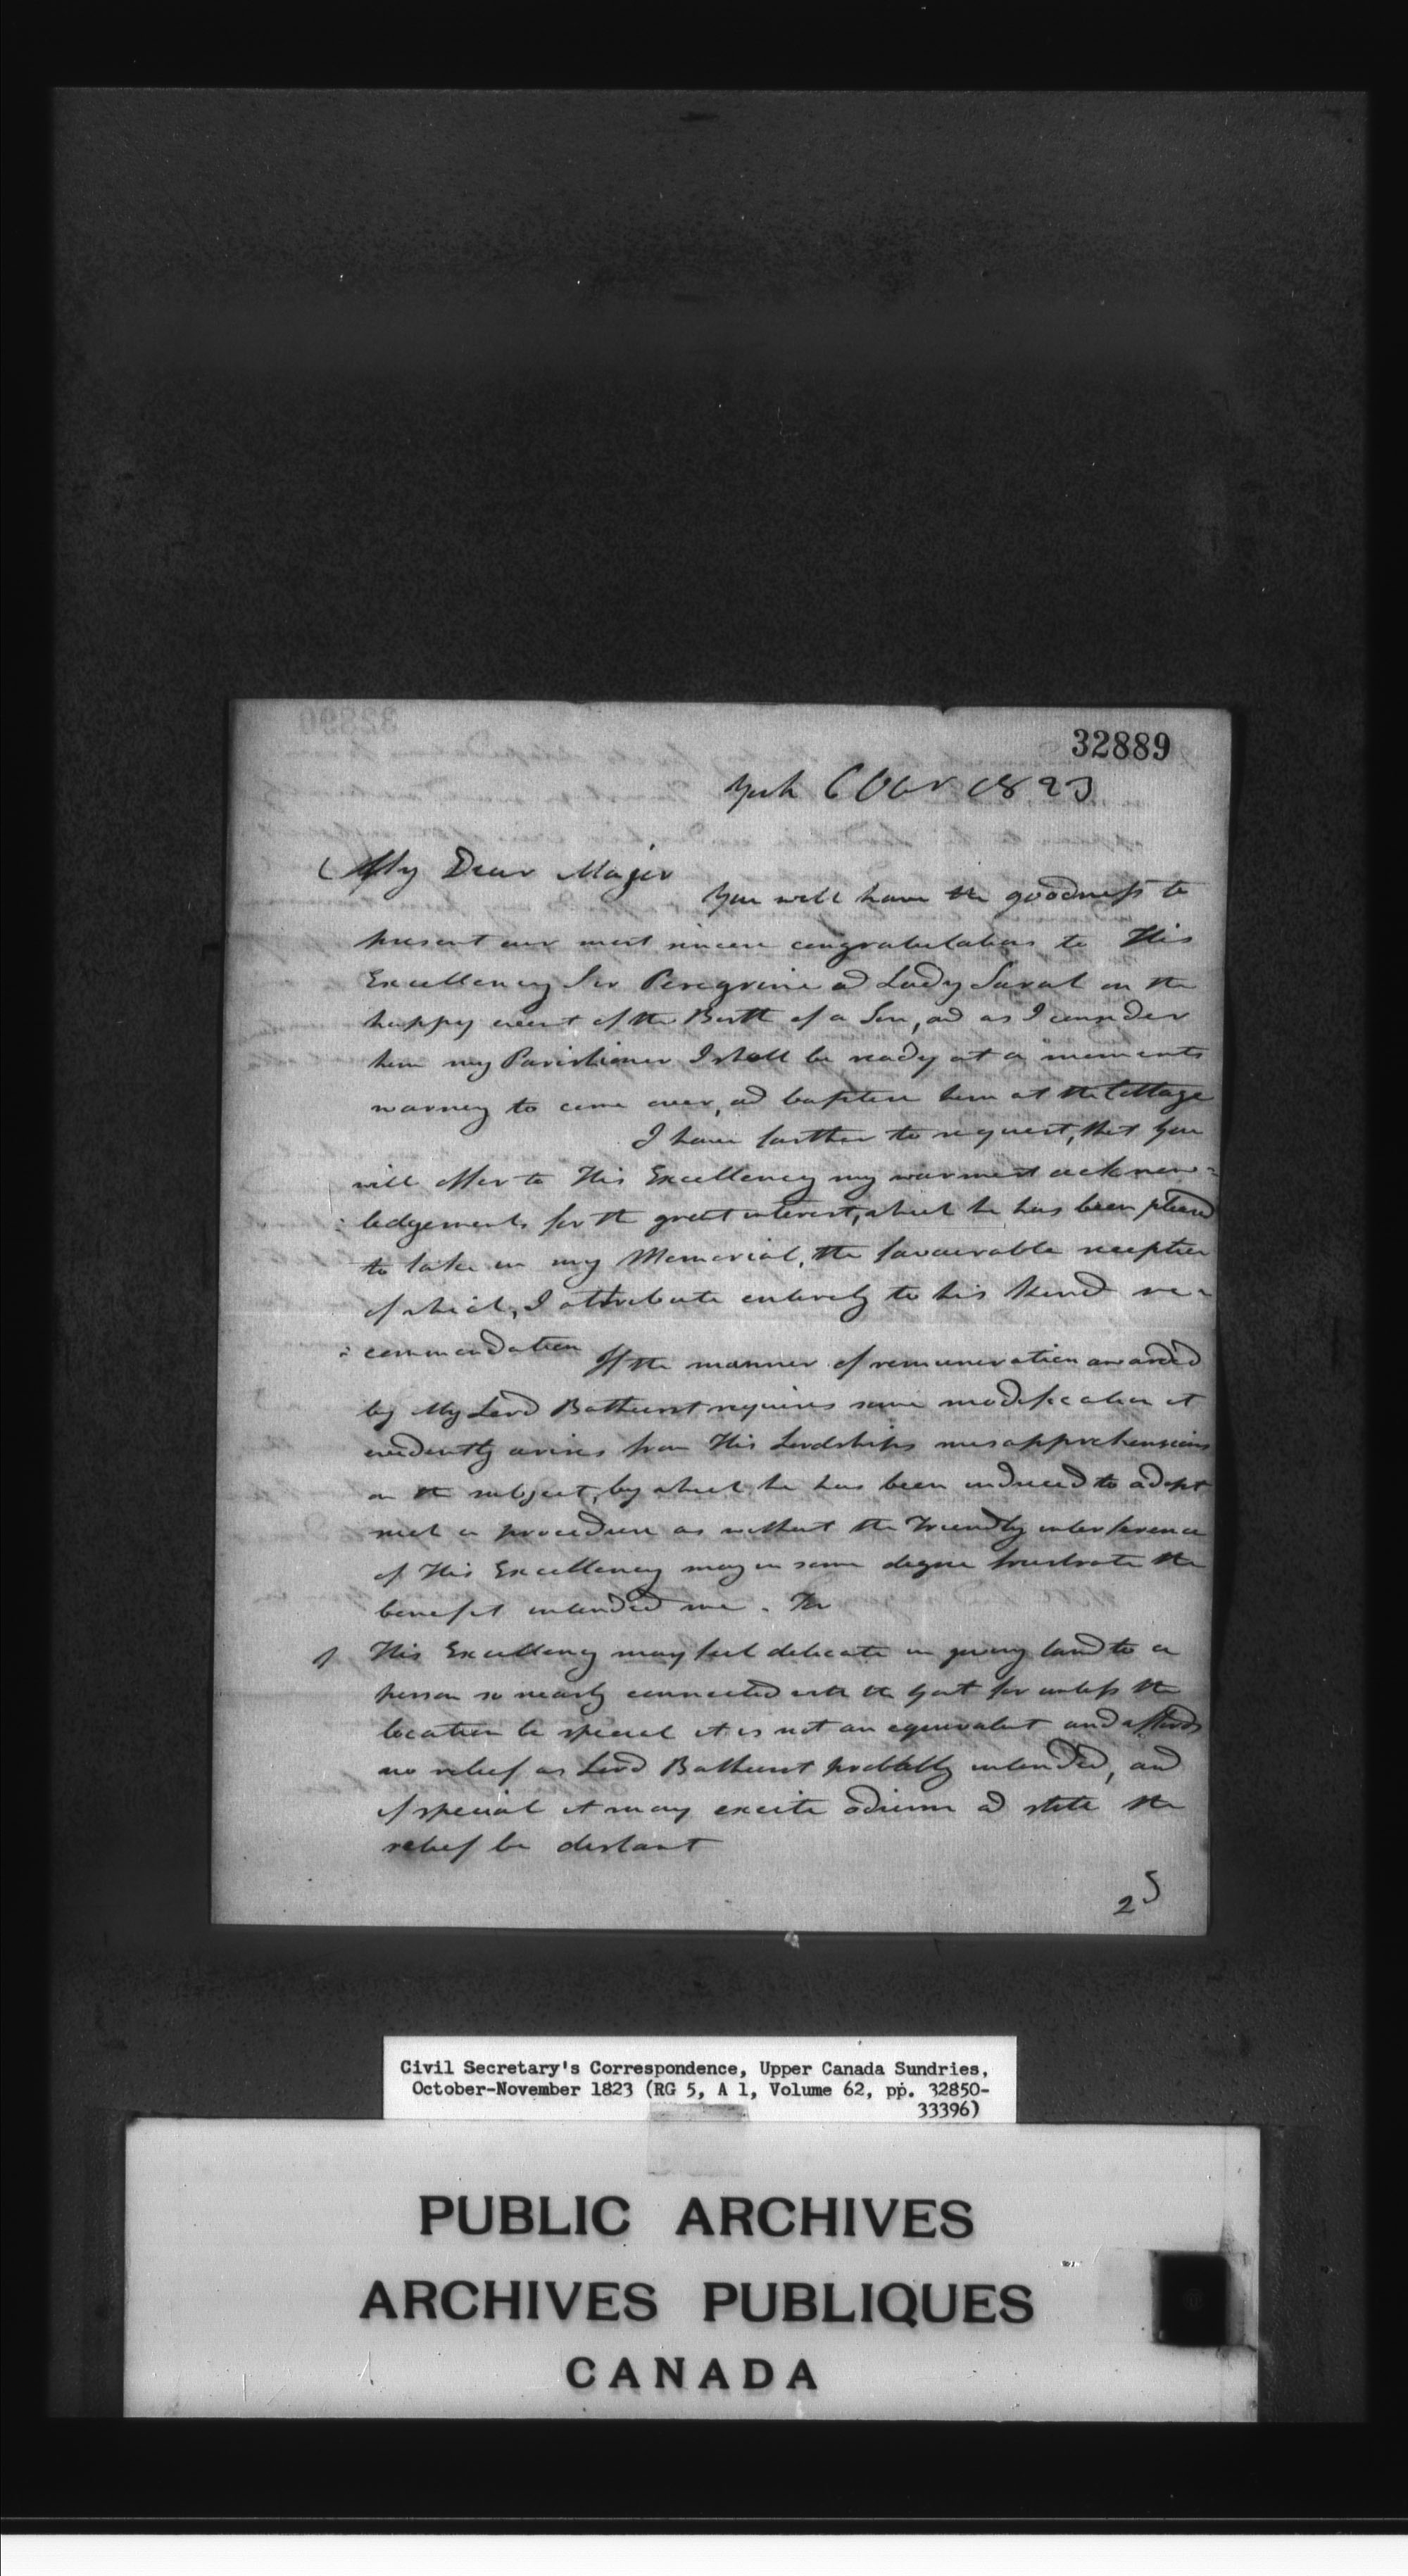 32889
York 6 Octr 1823
My Dear Major
You will have the goodness to
present our most sincere congratulations to His
Excellency Sir Peregrine ad Lady Sarah on the
happy event of the Birth of a Son, ad as I consider
him my Parishioner I shall be ready at a moments
warning to come over, ad baptise him at the Cottage
I have farther to request, that you
will offer to His Excellency my warmest acknow=
=ledgements for the great interest, which he has been pleased
to take in my Memorial, the favourable reception
of which, I attribute entirely to his kind re=
=commendation
If the manner of remuneration awarded
by My Lord Bathurst requires some modification it
evidently arises from His Lordships misapprehensions
on the subject, by which he has been induced to adopt
such a procedure as without the friendly interference
of His Excellency may in some degree frustrate the
benefit intended me.
1 His Excellency may feel delicate in giving land to a
person so nearly connected with the Govt for unless the
location be special it is not an equivalent and affords
no relief as Lord Bathurst probably intended, and
if special it may excite odium ad the
relief be distant
2
Civil Secretary's Correspondence, Upper Canada Sundries,
October-November 1823 (RG 5, A 1, Volume 62, pp. 32850-
33396)
PUBLIC ARCHIVES
ARCHIVES PUBLIQUES
CANADA